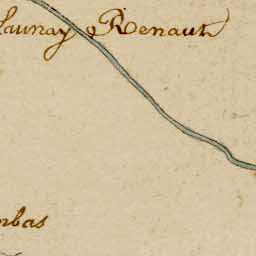 Launay Renault
mbas